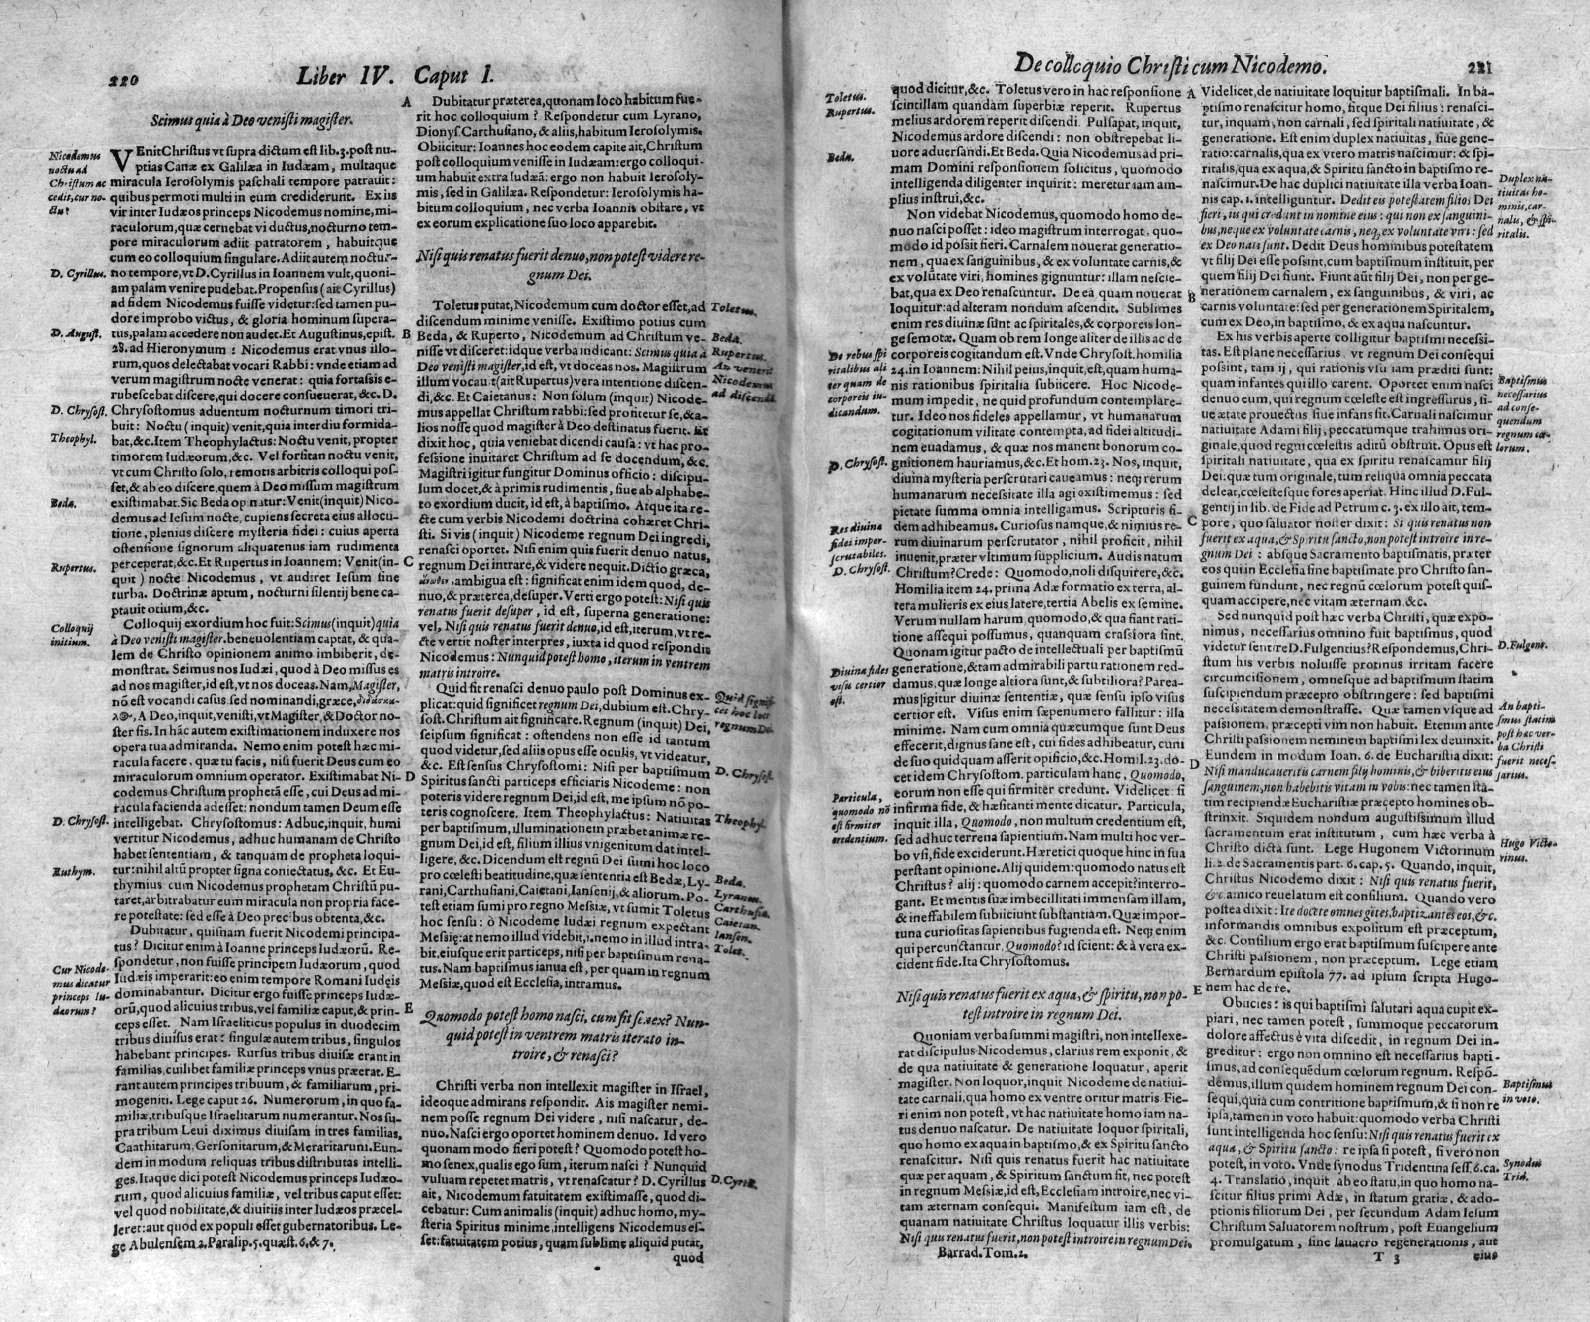 220 Liber IV. Caput I.
Scimus quia à Deo venisti magister.
VEnit Christus vt supra dictum est lib.3. post nu-
ptias Canæ ex Galilæa in Iudæam, multaque
miracula Ierosolymis paschali tempore patrauit:
quibus permoti multi in eum crediderunt. Ex iis
vir inter Iudæos princeps Nicodemus nomine, mi-
raculorum, quæ cernebat vi ductus, nocturno tem-
pore miraculorum adiit patratorem, habuitque
cum eo colloquium singulare. Adiit autem noctur-
no tempore, vt D. Cyrillus in Ioannem vult, quoni-
am palam venire pudebat. Propensus (ait Cyrillus)
ad fidem Nicodemus fuisse videtur: sed tamen pu-
dore improbo victus, & gloria hominum supera-
tus, palam accedere non audet. Et Augustinus, epist.
28. ad Hieronymum: Nicodemus erat vnus illo-
rum, quos delectabat vocari Rabbi: vnde etiam ad
verum magistrum nocte venerat: quia fortassis e-
rubescebat discere, qui docere consueuerat, &c. D.
Chrysostomus aduentum nocturnum timori tri-
buit: Noctu (inquit) venit, quia interdiu formida-
bat, &c. Item Theophylactus: Noctu venit, propter
timorem Iudæorum, &c. Vel forsitan noctu venit,
vt cum Christo solo, remotis arbitris colloqui pos-
set, & ab eo discere, quem à Deo missum magistrum
existimabat. Sic Beda opinatur: Venit (inquit) Nico-
demus ad Iesum nocte, cupiens secreta eius allocu-
tione, plenius discere mysteria fidei: cuius aperta
ostensione signorum aliquatenus iam rudimenta
perceperat, &c. Et Rupertus in Ioannem: Venit (in-
quit) nocte Nicodemus, vt audiret Iesum sine
turba. Doctrinæ aptum, nocturni silentij bene ca-
ptauit otium, &c.
Colloquij exordium hoc fuit: Scimus (inquit) quia
à Deo venisti magister. beneuolentiam captat, & qua-
lem de Christo opinionem animo imbiberit, de-
monstrat. Scimus nos Iudæi, quod à Deo missus es
ad nos magister, id est, vt nos doceas. Nam, Magister,
nō est vocandi casus sed nominandi, græce,
A Deo, inquit, venisti, vt Magister, & Doctor no-
ster sis. In hāc autem existimationem induxere nos
opera tua admiranda. Nemo enim potest hæc mi-
racula facere, quæ tu facis, nisi fuerit Deus cum eo
miraculorum omnium operator. Existimabat Ni-
codemus Christum prophetā esse, cui Deus ad mi-
racula facienda adesset: nondum tamen Deum esse
intelligebat. Chrysostomus: Adhuc, inquit, humi
vertitur Nicodemus, adhuc humanam de Christo
habet sententiam, & tanquam de propheta loqui-
tur: nihil altū propter signa coniectatus, &c. Et Eu-
thymius cum Nicodemus prophetam Christū pu-
taret, arbitrabatur eum miracula non propria face-
re potestate: sed esse à Deo precibus obtenta, &c.
Dubitatur, quisnam fuerit Nicodemi principa-
tus? Dicitur enim à Ioanne princeps Iudæorū. Re-
spondetur, non fuisse principem Iudæorum, quod
Iudæis imperarit: eo enim tempore Romani Iudęis
dominabantur. Dicitur ergo fuisse princeps Iudæ-
orū, quod alicuius tribus, vel familiæ caput, & prin-
ceps esset. Nam Israeliticus populus in duodecim
tribus diuisus erat: singulæ autem tribus, singulos
habebant principes. Rursus tribus diuisæ erant in
familias, cuilibet familiæ princeps vnus præerat. E-
rant autem principes tribuum, & familiarum, pri-
mogeniti. Lege caput 26. Numerorum, in quo fa-
miliæ, tribusque Israelitarum numerantur. Nos su-
pra tribum Leui diximus diuisam in tres familias,
Caathitarum, Gersonitarum, & Meraritarum. Eun-
dem in modum reliquas tribus distributas intelli-
ges. Itaque dici potest Nicodemus princeps Iudæo-
rum, quod alicuius familiæ, vel tribus caput esset:
vel quod nobilitate, & diuitiis inter Iudæos præcel-
leret: aut quod ex populi esset gubernatoribus. Le-
ge Abulensem 2. Paralip. 5. quæst. 6. & 7.
Nicodemus
noctu ad
Christum ac
cedit, cur no-
ctu?
D. Cyrillus.
D. August.
D. Chrysost.
Theophyl.
Beda.
Rupertus.
Colloquij
initium.
D. Chrysost.
Euthym.
Cur Nicode-
mus dicatur
princeps Iu-
dæorum?
A
B
C
D
E
Dubitatur præterea, quonam loco habitum fue-
rit hoc colloquium? Respondetur cum Lyrano,
Dionys. Carthusiano, & aliis, habitum Ierosolymis.
Obiicitur: Ioannes hoc eodem capite ait, Christum
post colloquium venisse in Iudæam: ergo colloqui-
um habuit extra Iudæā: ergo non habuit Ierosoly-
mis, sed in Galilæa. Respondetur: Ierosolymis ha-
bitum colloquium, nec verba Ioannis obstare, vt
ex eorum explicatione suo loco apparebit.
Nisi quis renatus fuerit denuo, non potest videre re-
gnum Dei.
Toletus putat, Nicodemum cum doctor esset, ad
discendum minime venisse. Existimo potius cum
Beda, & Ruperto, Nicodemum ad Christum ve-
nisse vt disceret: idque verba indicant: Scimus quia à
Deo venisti magister, id est, vt doceas nos. Magistrum
illum vocauit (ait Rupertus) vera intentione discen-
di, &c. Et Caietanus: Non solum (inquit) Nicode-
mus appellat Christum rabbi: sed profitetur se, & a-
lios nosse quod magister à Deo destinatus fuerit. Et
dixit hoc, quia veniebat dicendi causa: vt hac pro-
fessione inuitaret Christum ad se docendum, &c.
Magistri igitur fungitur Dominus officio: discipu-
lum docet, & à primis rudimentis, siue ab alphabe-
to exordium ducit, id est, à baptismo. Atque ita re-
cte cum verbis Nicodemi doctrina cohæret Chri-
sti. Si vis (inquit) Nicodeme regnum Dei ingredi,
renasci oportet. Nisi enim quis fuerit denuo natus,
regnum Dei intrare, & videre nequit. Dictio græca,
ambigua est: significat enim idem quod, de-
nuo, & præterea, desuper. Verti ergo potest: Nisi quis
renatus fuerit desuper, id est, superna generatione:
vel, Nisi quis renatus fuerit denuo, id est, iterum, vt re-
cte vertit noster interpres, iuxta id quod respondis
Nicodemus: Nunquid potest homo, iterum in ventrem
matris introire.
Quid sit renasci denuo paulo post Dominus ex-
plicat: quid significet regnum Dei, dubium est. Chry-
sost. Christum ait significare. Regnum (inquit) Dei,
seipsum significat: ostendens non esse id tantum
quod videtur, sed aliis opus esse oculis, vt videatur,
&c. Est sensus Chrysostomi: Nisi per baptismum
Spiritus sancti particeps efficiaris Nicodeme: non
poteris videre regnum Dei, id est, me ipsum nō po-
teris cognoscere. Item Theophylactus: Natiuitas
per baptismum, illuminationem præbet animæ re-
gnum Dei, id est, filium illius vnigenitum dat intel-
ligere, &c. Dicendum est regnū Dei sumi hoc loco
pro cœlesti beatitudine, quæ sententia est Bedæ, Ly-
rani, Carthusiani, Caietani, Iansenij, & aliorum. Po-
test etiam sumi pro regno Messiæ, vt sumit Toletus
hoc sensu: ò Nicodeme Iudæi regnum expectant
Messię: at nemo illud videbit, i. nemo in illud intra-
bit, eiusque erit particeps, nisi per baptismum rena-
tus. Nam baptismus ianua est, per quam in regnum
Messiæ, quod est Ecclesia, intramus.
Quomodo potest homo nasci, cum sit senex? Nun-
quid potest in ventrem matris iterato in-
troire, & renasci?
Christi verba non intellexit magister in Israel,
ideoque admirans respondit. Ais magister nemi-
nem posse regnum Dei videre, nisi nascatur, de-
nuo. Nasci ergo oportet hominem denuo. Id vero
quonam modo fieri potest? Quomodo potest ho-
mo senex, qualis ego sum, iterum nasci? Nunquid
vuluam repetet matris, vt renascatur? D. Cyrillus
ait, Nicodemum fatuitatem existimasse, quod di-
cebatur: Cum animalis (inquit) adhuc homo, my-
steria Spiritus minime intelligens Nicodemus es-
set: fatuitatem potius, quam sublime aliquid putat,
quod
Toletus.
Beda.
Rupertus.
An venerit
Nicodemus
ad discendū.
Quid signifi-
cet hoc loco
regnum Dei.
D. Chrysost.
Theophyl.
Beda.
Lyranus.
Carthusia.
Caietan.
Iansen.
Tolet.
D. Cyrill.
De colloquio Christi cum Nicodemo. 221
quod dicitur, &c. Toletus vero in hac responsione
scintillam quandam superbiæ reperit. Rupertus
melius ardorem reperit discendi. Pulsapat, inquit,
Nicodemus ardore discendi: non obstrepebat li-
uore aduersandi. Et Beda. Quia Nicodemus ad pri-
mam Domini responsionem solicitus, quomodo
intelligenda diligenter inquirit: meretur iam am-
plius instrui, &c.
Non videbat Nicodemus, quomodo homo de-
nuo nasci posset: ideo magistrum interrogat, quo-
modo id possit fieri. Carnalem nouerat generatio-
nem, qua ex sanguinibus, & ex voluntate carnis, &
ex volūtate viri, homines gignuntur: illam nescie-
bat, qua ex Deo renascuntur. De ea quam nouerat
loquitur: ad alteram nondum ascendit. Sublimes
enim res diuinæ sūnt ac spiritales, & corporeis lon-
ge semotæ. Quam ob rem longe aliter de illis ac de
corporeis cogitandum est. Vnde Chrysost. homilia
24. in Ioannem: Nihil peius, inquit, est, quam huma-
nis rationibus spiritalia subiicere. Hoc Nicode-
mum impedit, ne quid profundum contemplare-
tur. Ideo nos fideles appellamur, vt humanarum
cogitationum vilitate contempta, ad fidei altitudi-
nem euadamus, & quæ nos manent bonorum co-
gnitionem hauriamus, &c. Et hom. 23. Nos, inquit,
diuina mysteria perscrutari caueamus: neq; rerum
humanarum necessitate illa agi existimemus: sed
pietate summa omnia intelligamus. Scripturis fi-
dem adhibeamus. Curiosus namque, & nimius re-
rum diuinarum perscrutator, nihil proficit, nihil
inuenit, præter vltimum supplicium. Audis natum
Christum? Crede: Quomodo, noli disquirere, &c.
Homilia item 24. prima Adæ formatio ex terra, al-
tera mulieris ex eius latere, tertia Abelis ex semine.
Verum nullam harum, quomodo, & qua fiant rati-
tione assequi possumus, quanquam crassiora sint.
Quonam igitur pacto de intellectuali per baptismū
generatione, & tam admirabili partu rationem red-
damus, quæ longe altiora sunt, & subtiliora? Parea-
mus igitur diuinæ sententiæ, quæ sensu ipso visus
certior est. Visus enim sæpenumero fallitur: illa
minime. Nam cum omnia quæcumque sunt Deus
effecerit, dignus sane est, cui fides adhibeatur, cum
de suo quidquam asserit opificio, &c. Homil. 23. do-
cet idem Chrysostom. particulam hanc, Quomodo,
eorum non esse qui firmiter credunt. Videlicet: si
infirma fide, & hæsitanti mente dicatur. Particula,
inquit illa, Quomodo, non multum credentium est,
sed adhuc terrena sapientium. Nam multi hoc ver-
bo vsi, fide exciderunt. Hæretici quoque hinc in sua
perstant opinione. Alij quidem: quomodo natus est
Christus? alij: quomodo carnem accepit? interro-
gant. Et mentis suæ imbecillitati immensam illam,
& ineffabilem subiiciunt substantiam. Quæ impor-
tuna curiositas sapientibus fugienda est. Neq; enim
qui percunctantur, Quomodo? id scient: & à vera ex-
cident fide. Ita Chrysostomus.
Nisi quis renatus fuerit ex aqua, & spiritu, non po-
test introire in regnum Dei.
Quoniam verba summi magistri, non intellexe-
rat discipulus Nicodemus, clarius rem exponit, &
de qua natiuitate & generatione loquatur, aperit
magister. Non loquor, inquit Nicodeme de natiui-
tate carnali, qua homo ex ventre oritur matris Fie-
ri enim non potest, vt hac natiuitate homo iam na-
tus denuo nascatur. De natiuitate loquor spiritali,
quo homo ex aqua in baptismo, & ex Spiritu sancto
renascitur. Nisi quis renatus fuerit hac natiuitate
quæ per aquam, & Spiritum sanctum fit, nec potest
in regnum Messiæ, id est, Ecclesiam introire, nec vi-
tam æternam consequi. Manifestum iam est, de
quanam natiuitate Christus loquatur illis verbis:
Nisi quis renatus fuerit, non potest introire in regnum Dei.
Barrad. Tom. 2.
Toletus.
Rupertus.
Beda.
De rebus spi
ritalibus ali
ter quam de
corporeis iu-
dicandum.
D. Chrysost.
Res diuinæ
fidei imper-
scrutabiles.
D. Chrysost.
Diuina fides
visu certior
est.
Particula,
quomodo nō
est firmiter
credentium.
A
B
C
D
E
Videlicet, de natiuitate loquitur baptismali. In ba-
ptismo renascitur homo, fitque Dei filius: renasci-
tur, inquam, non carnali, sed spiritali natiuitate, &
generatione. Est enim duplex natiuitas, siue gene-
ratio: carnalis, qua ex vtero matris nascimur: & spi-
ritalis, qua ex aqua, & Spiritu sancto in baptismo re-
nascimur. De hac duplici natiuitate illa verba Ioan-
nis cap. 1. intelliguntur. Dedit eis potestatem filios Dei
fieri, iis qui credunt in nomine eius: qui non ex sanguini-
bus, neque ex voluntate carnis, neq, ex voluntate viri: sed
ex Deo nati sunt. Dedit Deus hominibus potestatem
vt filij Dei esse possint, cum baptismum instituit, per
quem filij Dei fiunt. Fiunt aūt filij Dei, non per ge-
nerationem carnalem, ex sanguinibus, & viri, ac
carnis voluntate: sed per generationem Spiritalem,
cum ex Deo, in baptismo, & ex aqua nascuntur.
Ex his verbis aperte colligitur baptismi necessi-
tas. Est plane necessarius vt regnum Dei consequi
possint, tam ij, qui rationis vsu iam præditi sunt:
quam infantes qui illo carent. Oportet enim nasci
denuo eum, qui regnum cœleste est ingressurus, si-
ue ætate prouectus siue infans sit. Carnali nascimur
natiuitate Adami filij, peccatumque trahimus ori-
ginale, quod regni cœlestis aditū obstruit. Opus est
spiritali natiuitate, qua ex spiritu renascamur filij
Dei: quæ tum originale, tum reliqua omnia peccata
deleat, cœlestesque fores aperiat. Hinc illud D. Ful-
gentij in lib. de Fide ad Petrum c. 3. ex illo ait, tem-
pore, quo saluator noster dixit: Si quis renatus non
fuerit ex aqua, & Spiritu sancto, non potest introire in re-
gnum Dei: absque Sacramento baptismatis, præter
eos qui in Ecclesia sine baptismate pro Christo san-
guinem fundunt, nec regnū cœlorum potest quis-
quam accipere, nec vitam æternam, &c.
Sed nunquid post hæc verba Christi, quæ expo-
nimus, necessarius omnino fuit baptismus, quod
videtur sentire D. Fulgentius? Respondemus, Chri-
stum his verbis noluisse protinus irritam facere
circumcisionem, omnesque ad baptismum statim
suscipiendum præcepto obstringere: sed baptismi
necessitatem demonstrasse. Quæ tamen vsque ad
passionem, præcepti vim non habuit. Etenim ante
Christi passionem neminem baptismi lex deuinxit.
Eundem in modum Ioan. 6. de Eucharistia dixit:
Nisi manducaueritis carnem filij hominis, & biberitis eius
sanguinem, non habebitis vitam in vobis: nec tamen sta-
tim recipiendæ Eucharistiæ præcepto homines ob-
strinxit. Siquidem nondum augustissimum illud
sacramentum erat institutum, cum hæc verba à
Christo dicta sunt. Lege Hugonem Victorinum
li. 2. de Sacramentis part. 6. cap. 5. Quando, inquit,
Christus Nicodemo dixit: Nisi quis renatus fuerit,
&c. amico reuelatum est consilium. Quando vero
postea dixit: Ite docete omnes gētes, baptizantes eos, &c.
informandis omnibus expositum est præceptum,
&c. Consilium ergo erat baptismum suscipere ante
Christi passionem, non præceptum. Lege etiam
Bernardum epistola 77. ad ipsum scripta Hugo-
nem hac de re.
Obiicies: is qui baptismi salutari aqua cupit ex-
piari, nec tamen potest, summoque peccatorum
dolore affectus è vita discedit, in regnum Dei in-
greditur: ergo non omnino est necessarius bapti-
smus, ad consequēdum cœlorum regnum. Respō-
demus, illum quidem hominem regnum Dei con-
sequi, quia cum contritione baptismum, & si non re
ipsa, tamen in voto habuit: quomodo verba Christi
sunt intelligenda hoc sensu: Nisi quis renatus fuerit ex
aqua, & Spiritu sancto: re ipsa si potest, si vero non
potest, in voto. Vnde synodus Tridentina sess. 6. ca.
4. Translatio, inquit ab eo statu, in quo homo na-
scitur filius primi Adæ, in statum gratiæ, & ado-
ptionis filiorum Dei, per secundum Adam Iesum
Christum Saluatorem nostrum, post Euangelium
promulgatum, sine lauacro regenerationis, aut
T 3 eius
Duplex na-
tiuitas ho-
minis, car-
nalis, & spi-
ritalis.
Baptismus
necessarius
ad conse-
quendum
regnum cœ-
lorum.
D. Fulgent.
An bapti-
smus statim
post hæc ver-
ba Christi
fuerit neces-
sarius.
Hugo Victo-
rinus.
Baptismus
in voto.
Synodus
Trid.